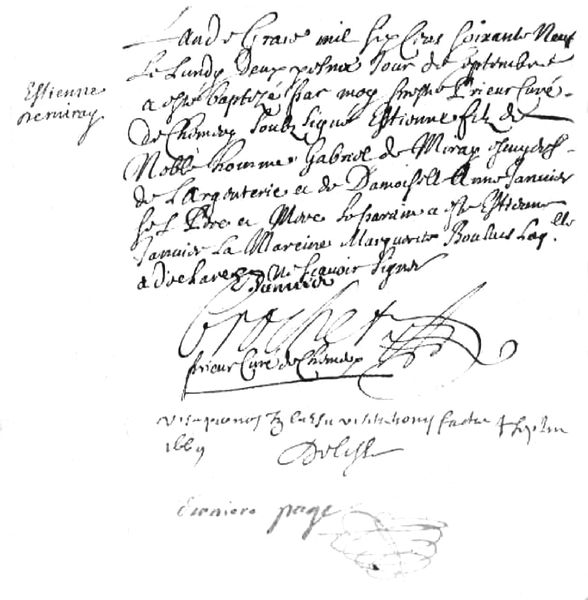 Estienne
de miray
Lan de Grace mil six Cens soixante Neuf
Le Lundy Deuxiesme Jour de septembre
a esté baptizé par moy prestre Prieur Curé
de Chemeu soubz signé Estienne filz de
Noble homme Gabriel de Miray escuyer Sr
de L'argenterie et de Damoiselle Anne Janvier
ses Pere et Mere Le parain a esté Estienne
Janvier La Mareine Marguerite Boulus Laq.lle
a declaré Ne scavoir signer
E Janvier
Crochet
prieur Curé de Chemeu
visitationis factae
1669
Derniere page